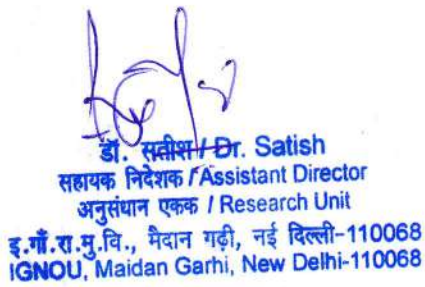 डॉ. सतीश / Dr. Satish
सहायक निदेशक / Assistant Director
अनुसंधान एकक / Research Unit
इ.गाँ.रा.मु.वि., मैदान गढ़ी, नई दिल्ली-110068
IGNOU, Maidan Garhi, New Delhi-110068